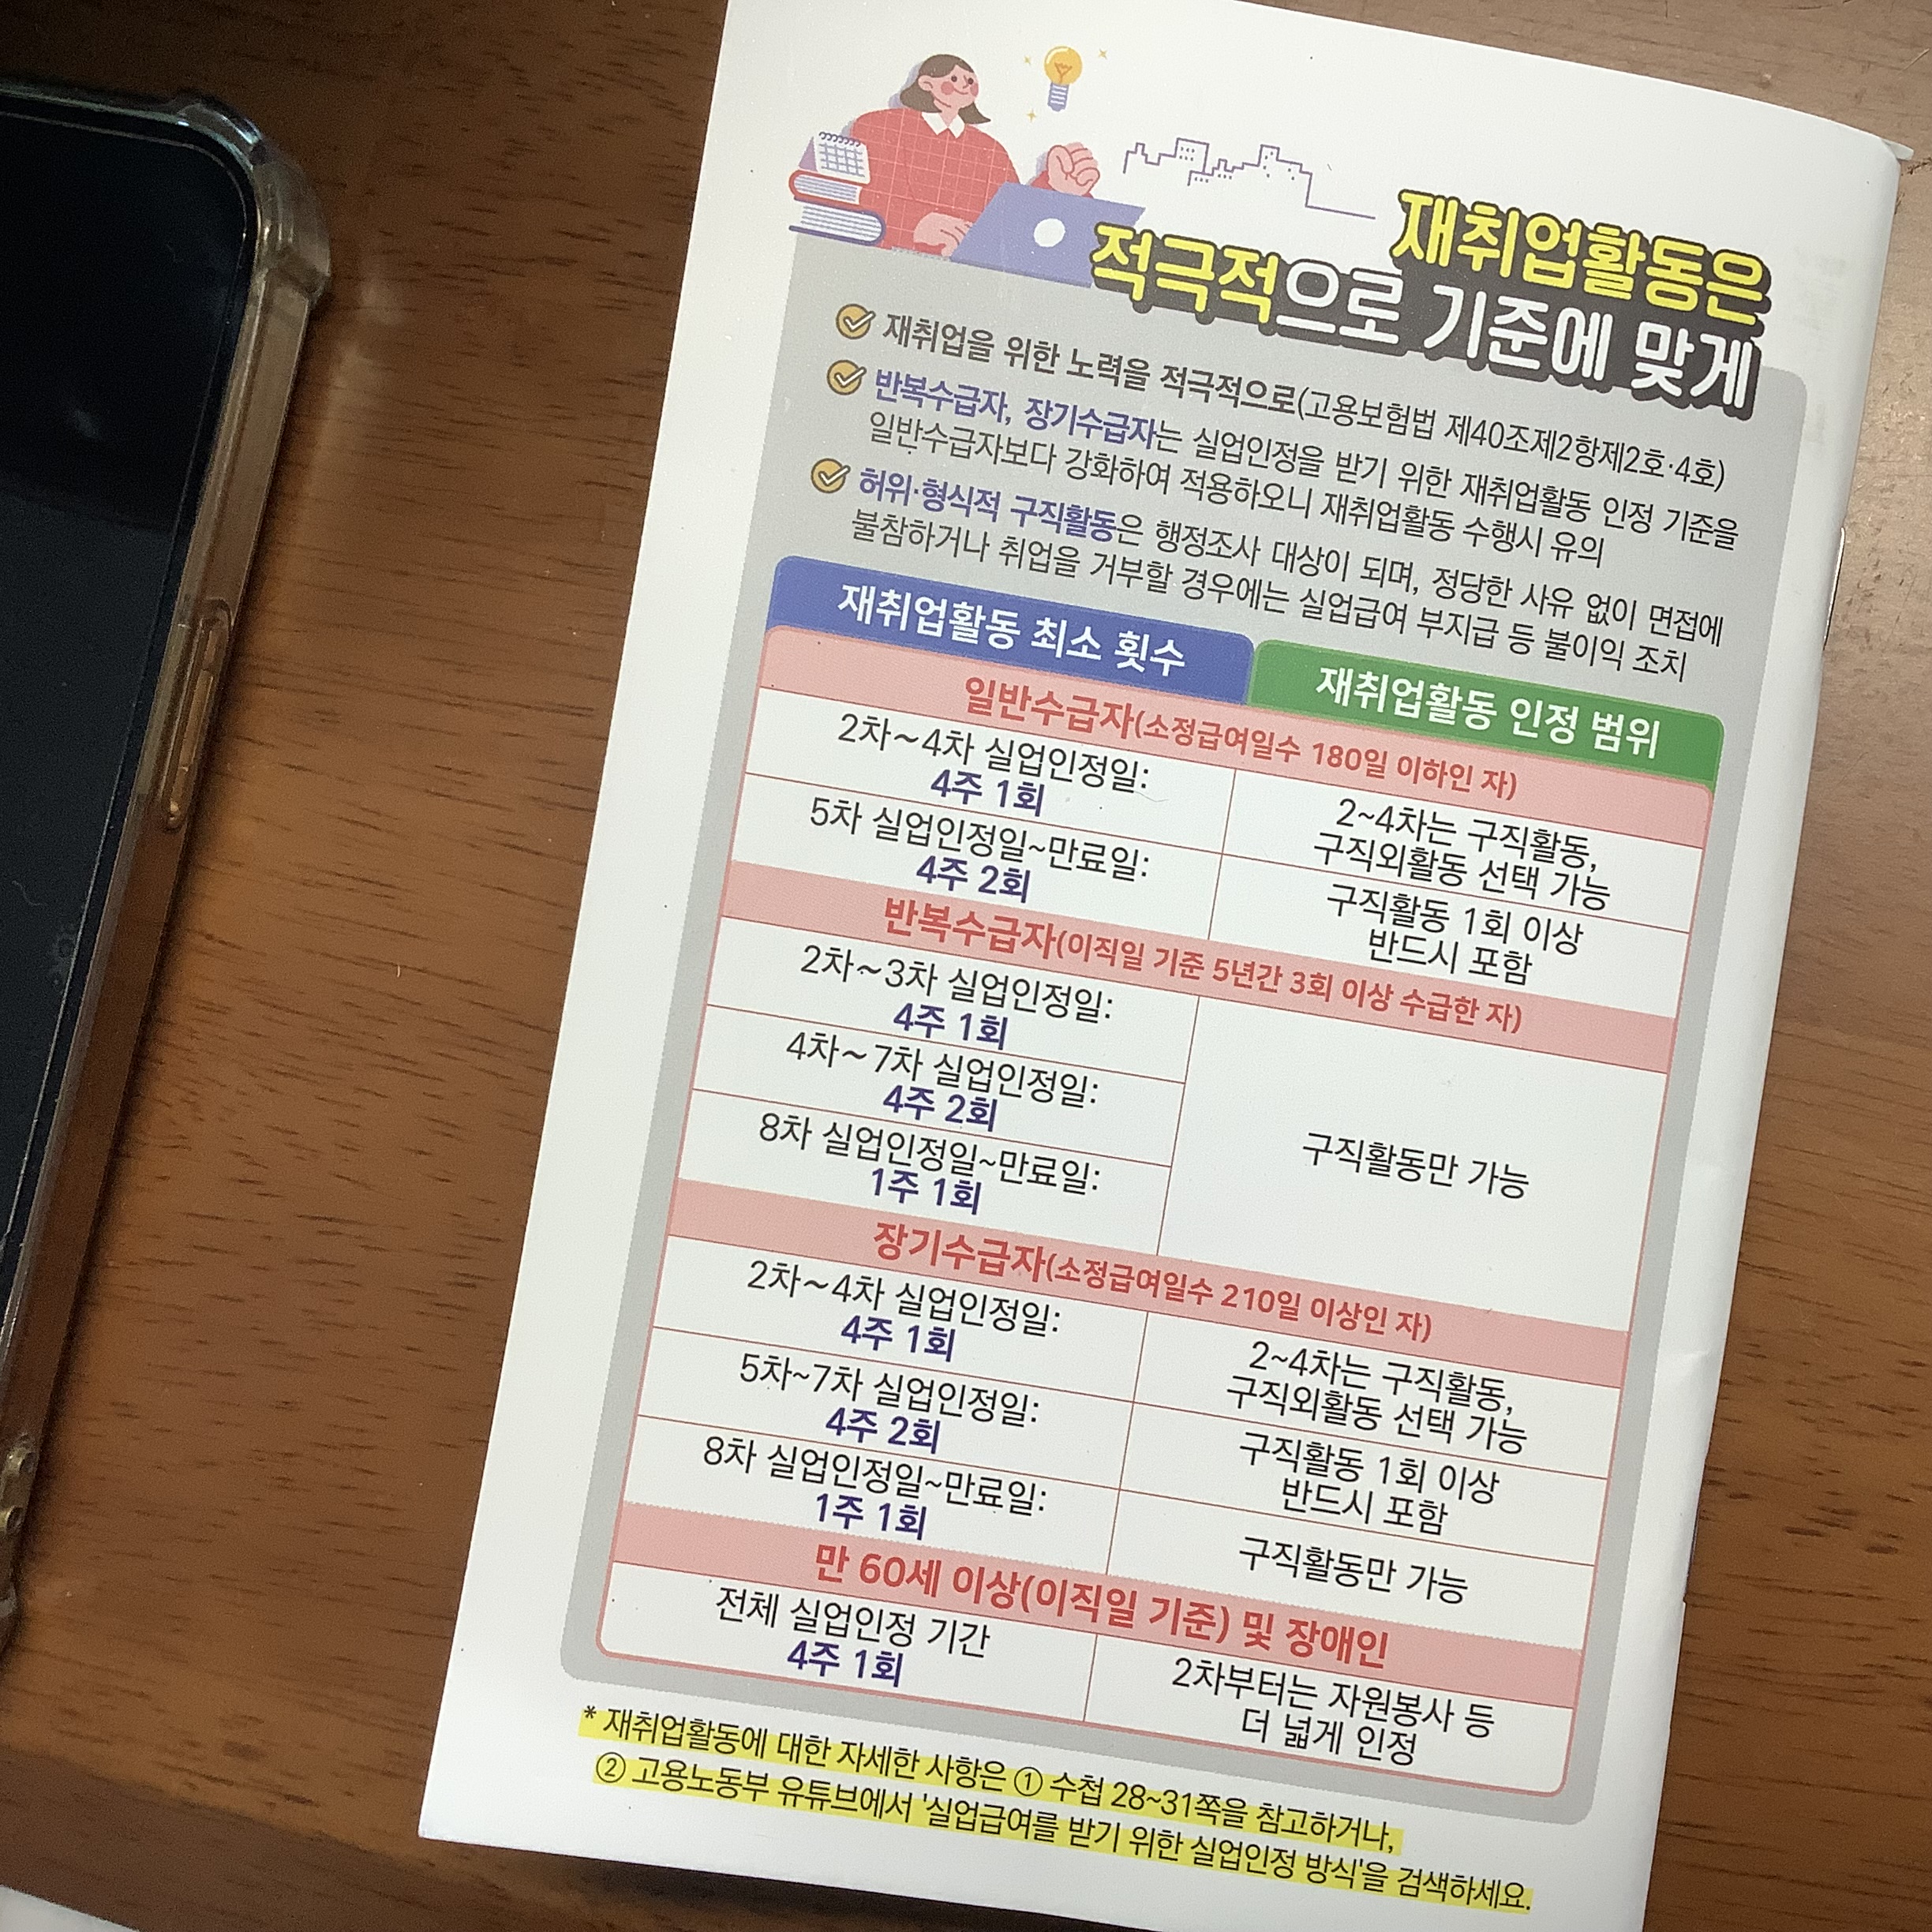 재취업활동은
적극적으로 기준에 맞게
재취업을 위한 노력을 적극적으로(고용보험법 제40조제2항제2호·4호)
반복수급자, 장기수급자는 실업인정을 받기 위한 재취업활동 인정 기준을
일반수급자보다 강화하여 적용하오니 재취업활동 수행시 유의
허위·형식적 구직활동은 행정조사 대상이 되며, 정당한 사유 없이 면접에
불참하거나 취업을 거부할 경우에는 실업급여 부지급 등 불이익 조치
재취업활동 최소 횟수
재취업활동 인정 범위
일반수급자(소정급여일수 180일 이하인 자)
2차~4차 실업인정일:
4주 1회
2~4차는 구직활동,
구직외활동 선택 가능
5차 실업인정일~만료일:
4주 2회
구직활동 1회 이상
반드시 포함
반복수급자(이직일 기준 5년간 3회 이상 수급한 자)
2차~3차 실업인정일:
4주 1회
4차~7차 실업인정일:
4주 2회
8차 실업인정일~만료일:
1주 1회
구직활동만 가능
장기수급자(소정급여일수 210일 이상인 자)
2차~4차 실업인정일:
4주 1회
2~4차는 구직활동,
구직외활동 선택 가능
5차~7차 실업인정일:
4주 2회
구직활동 1회 이상
반드시 포함
8차 실업인정일~만료일:
1주 1회
구직활동만 가능
만 60세 이상(이직일 기준) 및 장애인
전체 실업인정 기간
4주 1회
2차부터는 자원봉사 등
더 넓게 인정
* 재취업활동에 대한 자세한 사항은 ① 수첩 28~31쪽을 참고하거나,
② 고용노동부 유튜브에서 '실업급여를 받기 위한 실업인정 방식'을 검색하세요.